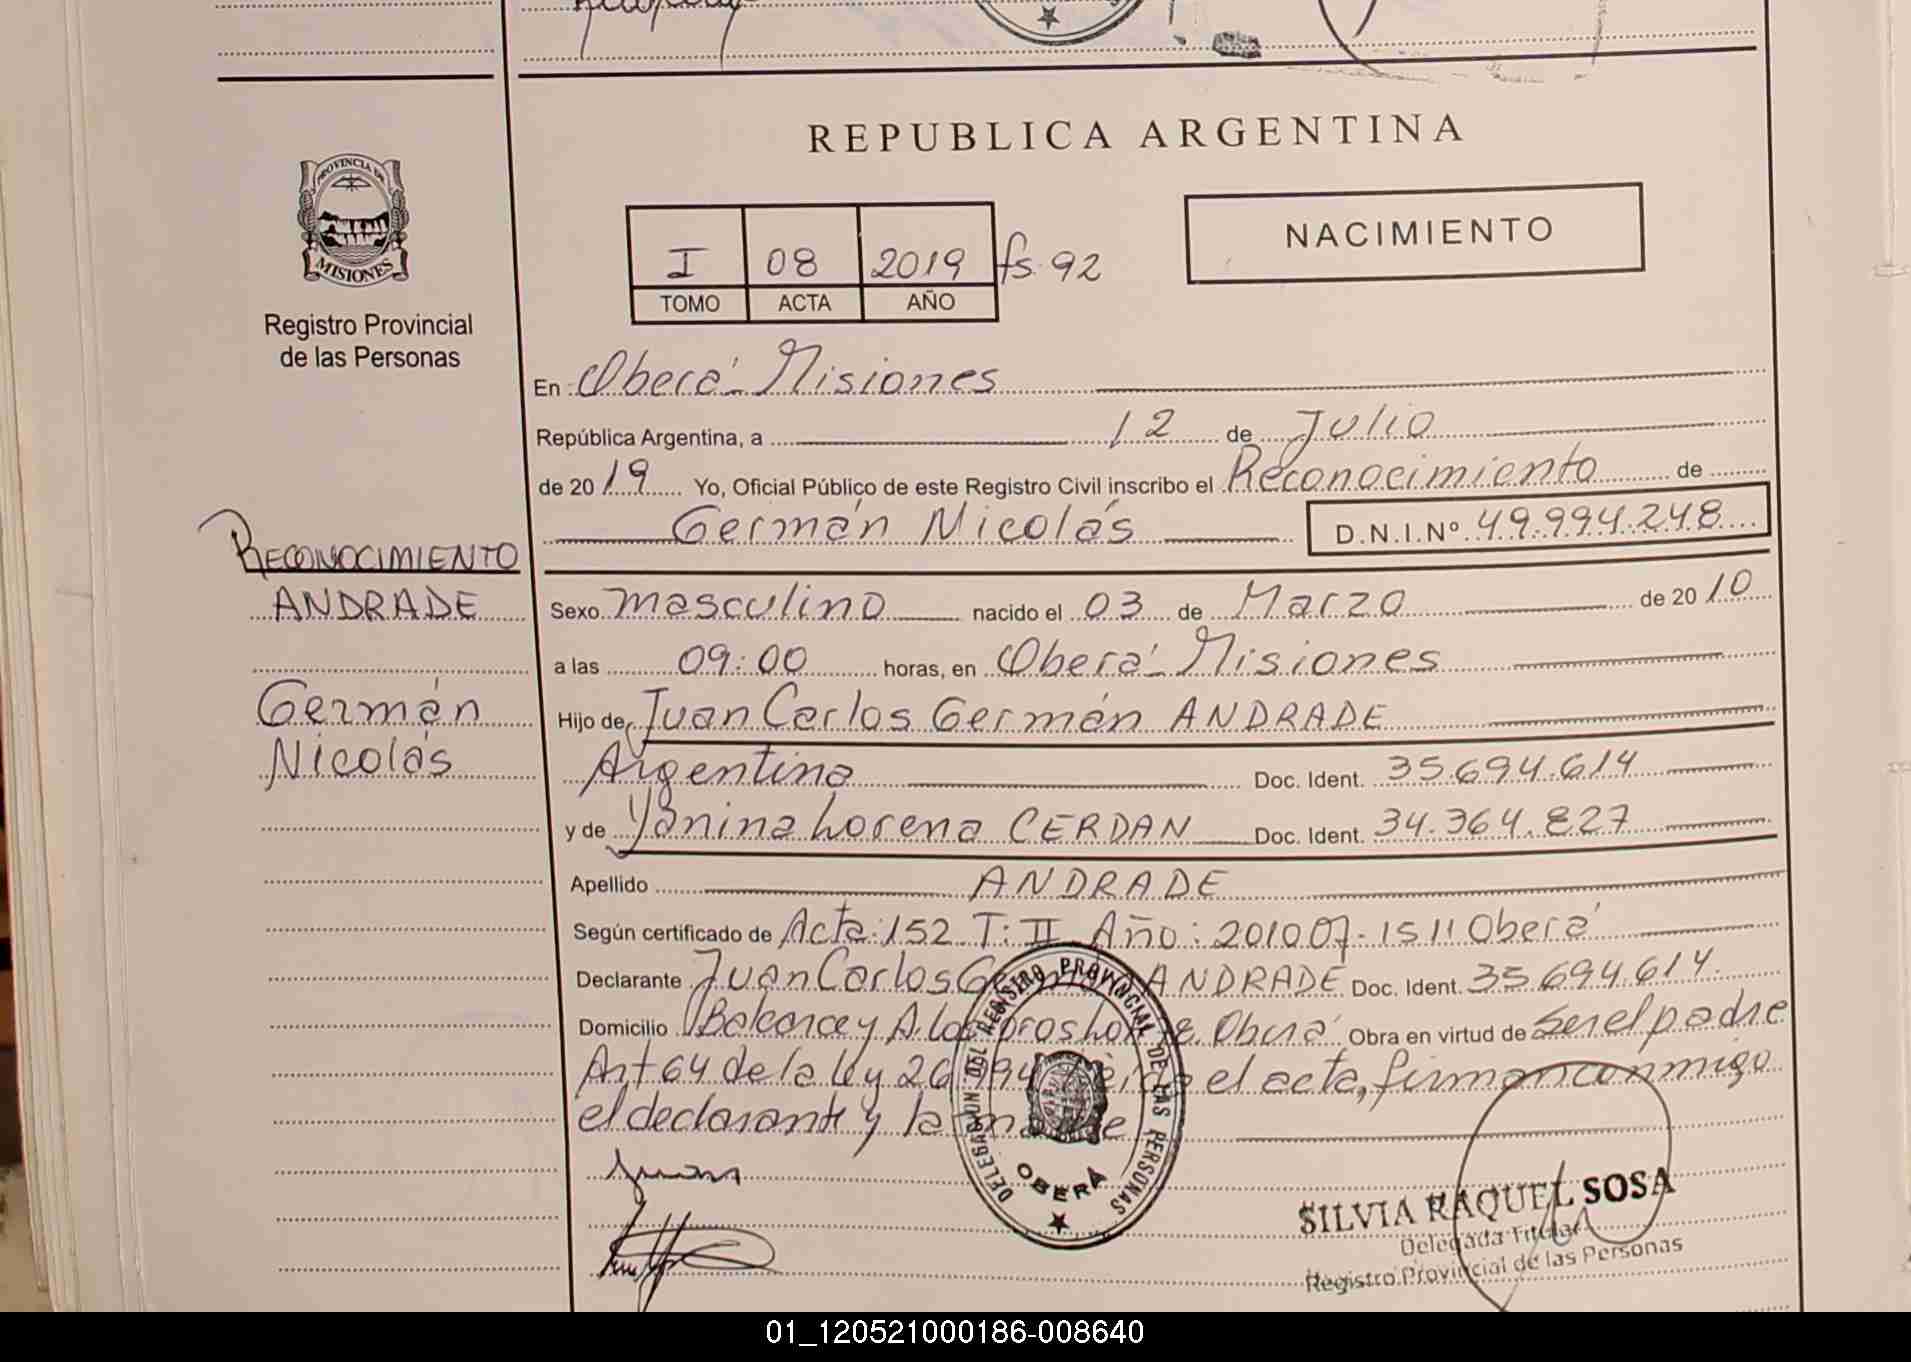 REPUBLICA ARGENTINA
PROVINCIA DE
MISIONES
Registro Provincial
de las Personas
I 08 2019 fs. 92
TOMO ACTA AÑO
NACIMIENTO
En Oberá - Misiones
República Argentina, a 12 de Julio
de 2019 Yo, Oficial Público de este Registro Civil inscribo el Reconocimiento de
Germán Nicolás D.N.I.Nº 49.994.248
RECONOCIMIENTO
ANDRADE
Germán
Nicolás
Sexo masculino nacido el 03 de Marzo de 2010
a las 09:00 horas, en Oberá - Misiones
Hijo de Juan Carlos Germán ANDRADE
Argentina Doc. Ident. 35.694.614
y de Yanina Lorena CERDAN Doc. Ident. 34.364.827
Apellido ANDRADE
Según certificado de Acta: 152 T: II Año: 2010 07-1511 Oberá
Declarante Juan Carlos ANDRADE Doc. Ident. 35.694.614
Domicilio Balcarce y A. Oberá Obra en virtud de ser el padre
Art 64 de la ley 26 el acta, firman conmigo
el declarante y la
DELEGACION DEL REGISTRO PROVINCIAL DE LAS PERSONAS
OBERÁ
Juan
SILVIA RAQUEL SOSA
Delegada Titular
Registro Provincial de las Personas
01_120521000186-008640